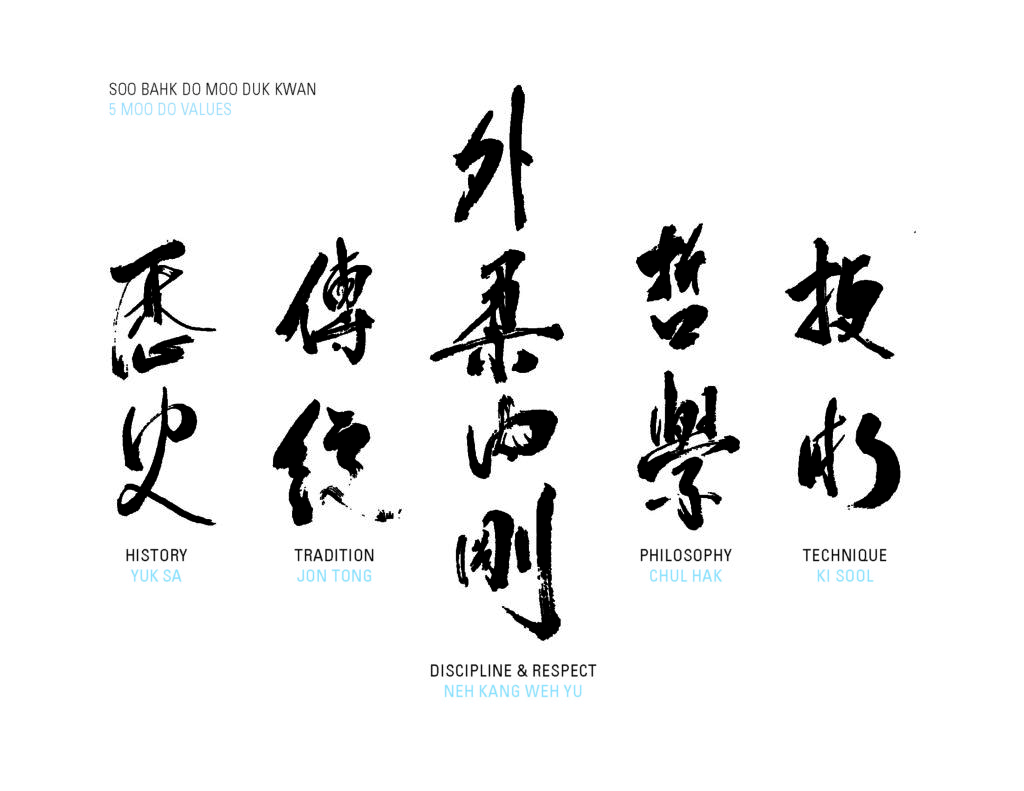 SOO BAHK DO MOO DUK KWAN
5 MOO DO VALUES
歷史
HISTORY
YUK SA
傳統
TRADITION
JON TONG
外柔內剛
DISCIPLINE & RESPECT
NEH KANG WEH YU
哲學
PHILOSOPHY
CHUL HAK
技術
TECHNIQUE
KI SOOL